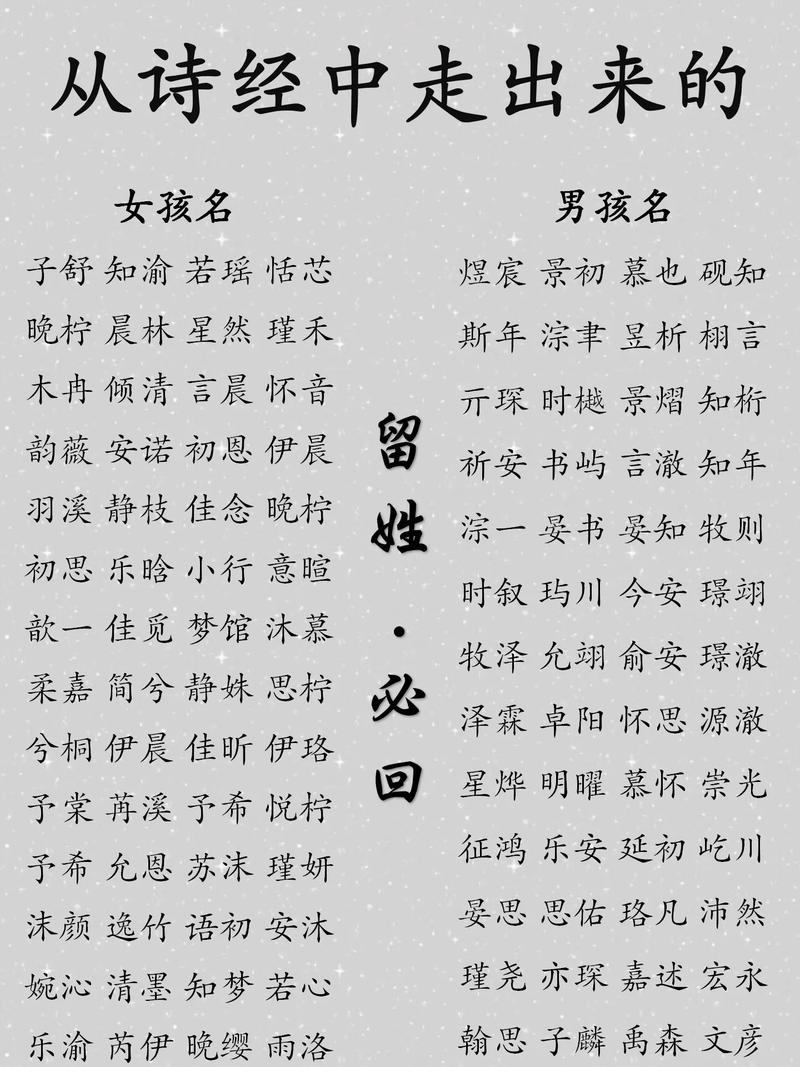 从诗经中走出来的
女孩名
子舒 知渝 若瑶 恬芯
晚柠 晨林 星然 瑾禾
木冉 倾清 言晨 怀音
韵薇 安诺 初恩 伊晨
羽溪 静枝 佳念 晚柠
初思 乐晗 小行 意暄
歆一 佳觅 梦馆 沐慕
柔嘉 简兮 静姝 思柠
兮桐 伊晨 佳昕 伊珞
予棠 苒溪 予希 悦柠
予希 允恩 苏沫 瑾妍
沫颜 逸竹 语初 安沐
婉沁 清墨 知梦 若心
乐渝 芮伊 晚缨 雨洛
留姓·必回
男孩名
煜宸 景初 慕也 砚知
斯年 淙聿 昱析 栩言
亓琛 时樾 景熠 知桁
祈安 书屿 言澈 知年
淙一 晏书 晏知 牧则
时叙 玙川 今安 璟翊
牧泽 允翊 俞安 璟澈
泽霖 卓阳 怀思 源澈
星烨 明曜 慕怀 崇光
征鸿 乐安 延初 屹川
晏思 思佑 珞凡 沛然
瑾尧 亦琛 嘉述 宏永
翰思 子麟 禹森 文彦